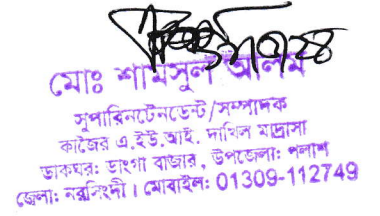 মোঃ শামসুল আলম
সুপারিনটেনডেন্ট/সম্পাদক
কাজৈর এ.ইউ.আই. দাখিল মাদ্রাসা
ডাকঘর: ডাংগা বাজার, উপজেলা: পলাশ
জেলা: নরসিংদী। মোবাইল: 01309-112749